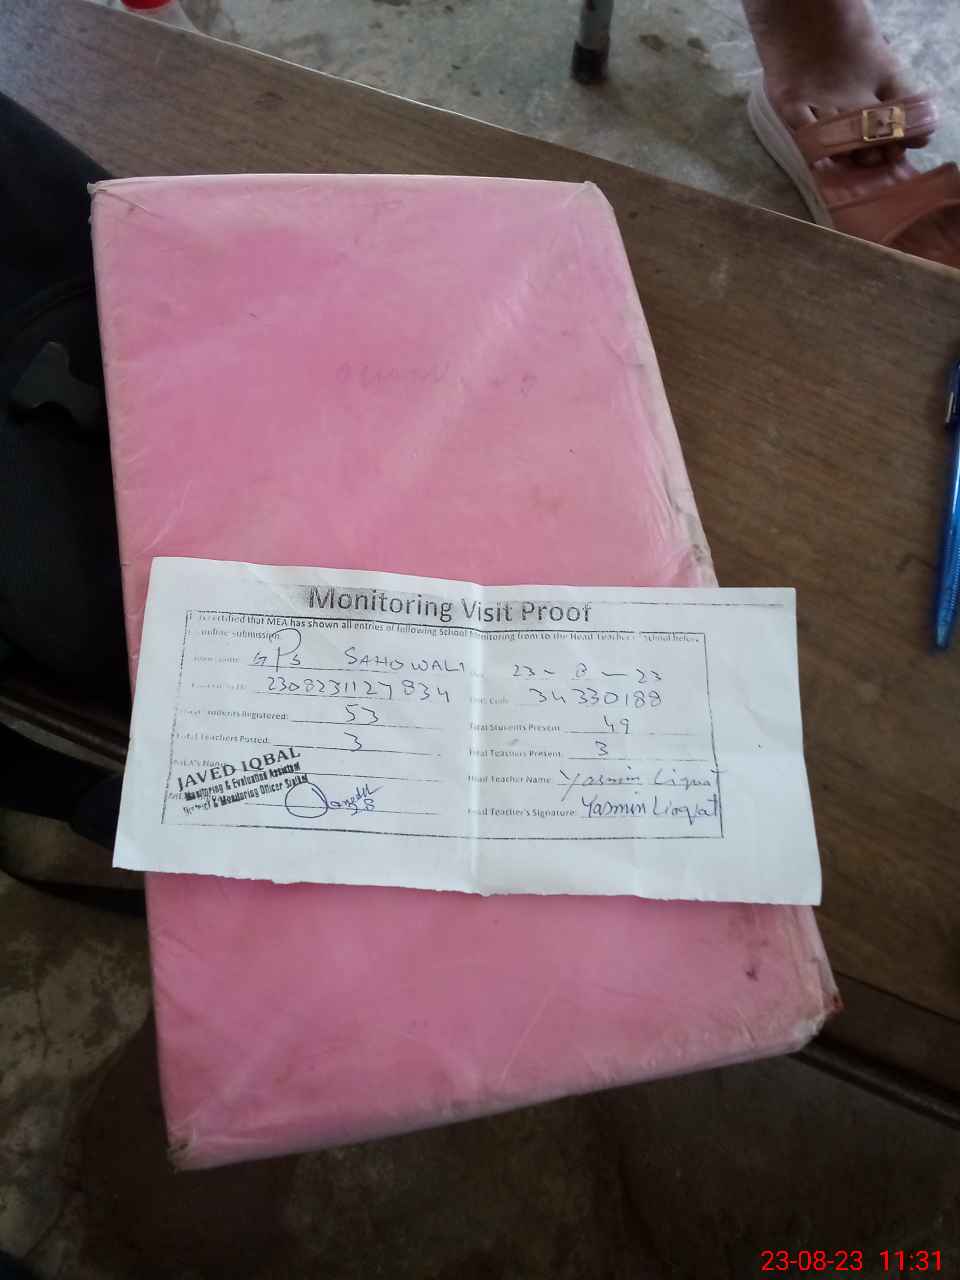 Monitoring Visit Proof
certified that MEA has shown all entries of following School Monitoring from to the Head Teacher School before
online submission.
GPS SAHOWALI 23 - 8 - 23
2308231127834 Code 34330188
Students Registered: 53 Total Students Present: 49
Total Teachers Posted: 3 Total Teachers Present: 3
Head Teacher Name: Yasmin Liqat
JAVED IQBAL
Monitoring & Evaluation Assistant
& Monitoring Officer
Head Teacher's Signature: Yasmin Liaqat
23-08-23 11:31